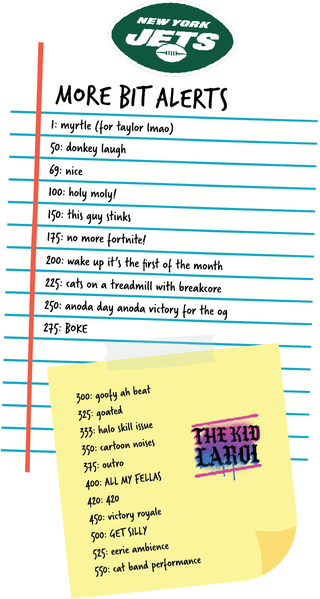 NEW YORK
JETS
MORE BIT ALERTS
1: myrtle (for taylor lmao)
50: donkey laugh
69: nice
100: holy moly!
150: this guy stinks
175: no more fortnite!
200: wake up it's the first of the month
225: cats on a treadmill with breakcore
250: anoda day anoda victory for the og
275: BOKE
300: goofy ah beat
325: goated
333: halo skill issue
350: cartoon noises
375: outro
400: ALL MY FELLAS
420: 420
450: victory royale
500: GET SILLY
525: eerie ambience
550: cat band performance
THE KID
LAROI